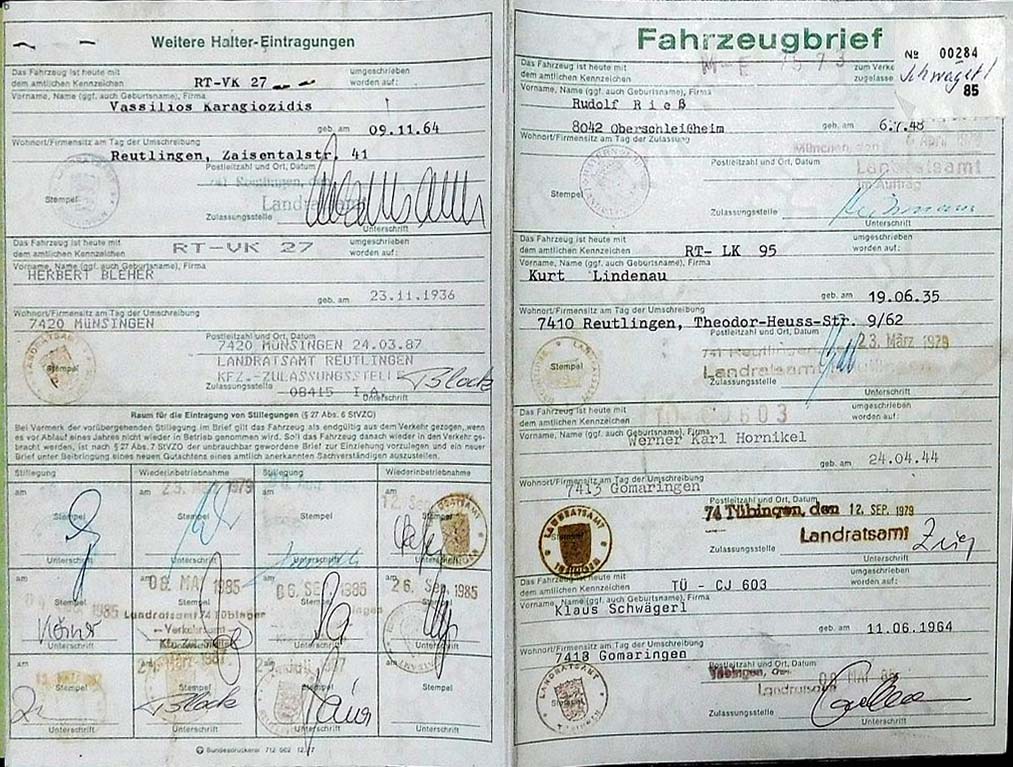 Weitere Halter-Eintragungen
Das Fahrzeug ist heute mit
dem amtlichen Kennzeichen
RT-VK 27
umgeschrieben
worden auf:
Vorname, Name (ggf. auch Geburtsname), Firma
Vassilios Karagiozidis
geb. am 09.11.64
Wohnort/Firmensitz am Tag der Umschreibung
Reutlingen, Zaisentalstr. 41
Postleitzahl und Ort, Datum
Stempel
Landratsamt
Zulassungsstelle
Unterschrift
Das Fahrzeug ist heute mit
dem amtlichen Kennzeichen
RT-VK 27
umgeschrieben
worden auf:
Vorname, Name (ggf. auch Geburtsname), Firma
HERBERT BLEHER
geb. am 23.11.1936
Wohnort/Firmensitz am Tag der Umschreibung
7420 MÜNSINGEN
Postleitzahl und Ort, Datum
7420 MÜNSINGEN 24.03.87
LANDRATSAMT REUTLINGEN
Stempel
KFZ.-ZULASSUNGSSTELLE
Zulassungsstelle
08415 I.A.
Block
Unterschrift
Raum für die Eintragung von Stillegungen (§ 27 Abs. 6 StVZO)
Bei Vermerk der vorübergehenden Stillegung im Brief gilt das Fahrzeug als endgültig aus dem Verkehr gezogen, wenn
es vor Ablauf eines Jahres nicht wieder in Betrieb genommen wird. Soll das Fahrzeug danach wieder in den Verkehr ge-
bracht werden, ist nach § 27 Abs. 7 StVZO der unbrauchbar gewordene Brief zur Einziehung vorzulegen und ein neuer
Brief unter Beibringung eines neuen Gutachtens eines amtlich anerkannten Sachverständigen auszustellen.
Stillegung Wiederinbetriebnahme Stillegung Wiederinbetriebnahme
am am am am
Stempel Stempel Stempel Stempel
Unterschrift Unterschrift Unterschrift Unterschrift
am am am am
08. MAI 1985 06. SEP. 1985 26. Sep. 1985
Stempel Stempel Stempel
Landratsamt 74 Tübingen
Unterschrift Unterschrift Unterschrift Unterschrift
am am am am
Stempel Stempel Stempel Stempel
Block
Unterschrift Unterschrift Unterschrift Unterschrift
Bundesdruckerei
Fahrzeugbrief
Nº 00284
Schwägerl
85
Das Fahrzeug ist heute mit
dem amtlichen Kennzeichen
zum Verke
zugelasse
Vorname, Name (ggf. auch Geburtsname), Firma
Rudolf Rieß
geb. am 6.7.48
8042 Oberschleißheim
Wohnort/Firmensitz am Tag der Zulassung
München, den
Postleitzahl und Ort, Datum
Landratsamt
im Auftrag
Stempel
Zulassungsstelle
Unterschrift
Das Fahrzeug ist heute mit
dem amtlichen Kennzeichen
RT- LK 95
umgeschrieben
worden auf:
Vorname, Name (ggf. auch Geburtsname), Firma
Kurt Lindenau
geb. am 19.06.35
Wohnort/Firmensitz am Tag der Umschreibung
7410 Reutlingen, Theodor-Heuss-Str. 9/62
Postleitzahl und Ort, Datum
23. März 1979
Landratsamt
Stempel
Zulassungsstelle
Unterschrift
Das Fahrzeug ist heute mit
dem amtlichen Kennzeichen
CJ 603
umgeschrieben
worden auf:
Vorname, Name (ggf. auch Geburtsname), Firma
Werner Karl Hornikel
geb. am 24.04.44
Wohnort/Firmensitz am Tag der Umschreibung
7413 Gomaringen
Postleitzahl und Ort, Datum
74 Tübingen, den 12. SEP. 1979
LANDRATSAMT
TÜBINGEN
Landratsamt
Zulassungsstelle
Unterschrift
Das Fahrzeug ist heute mit
dem amtlichen Kennzeichen
TÜ - CJ 603
umgeschrieben
worden auf:
Vorname, Name (ggf. auch Geburtsname), Firma
Klaus Schwägerl
geb. am 11.06.1964
Wohnort/Firmensitz am Tag der Umschreibung
7413 Gomaringen
Postleitzahl und Ort, Datum
LANDRATSAMT
Landratsamt
Stempel
Zulassungsstelle
Unterschrift